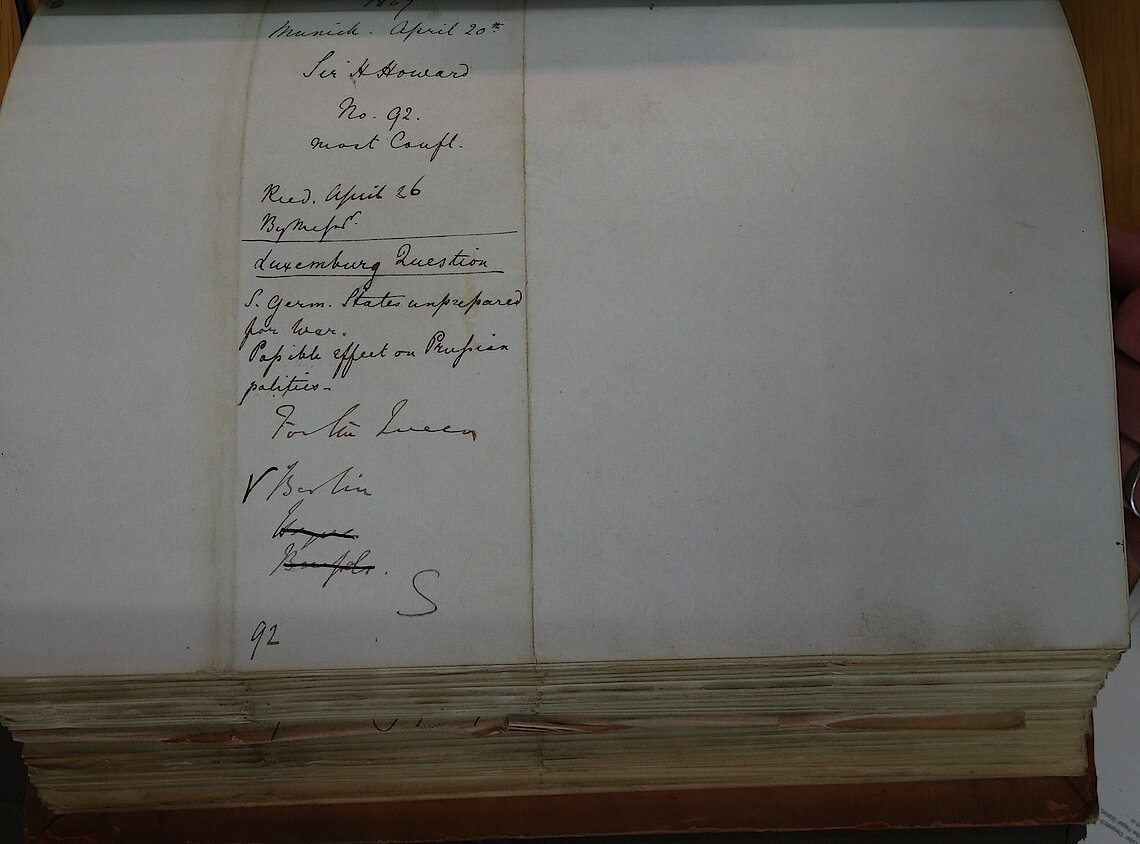 1867
Munich. April 20th
Sir H Howard
No. 92.
most Confl.
Recd. April 26
By Messr.
Luxemburg Question
S. Germ. States unprepared
for War.
Possible effect on Prussian
politics -
For the Queen
√ Berlin
Brussels.
S
92